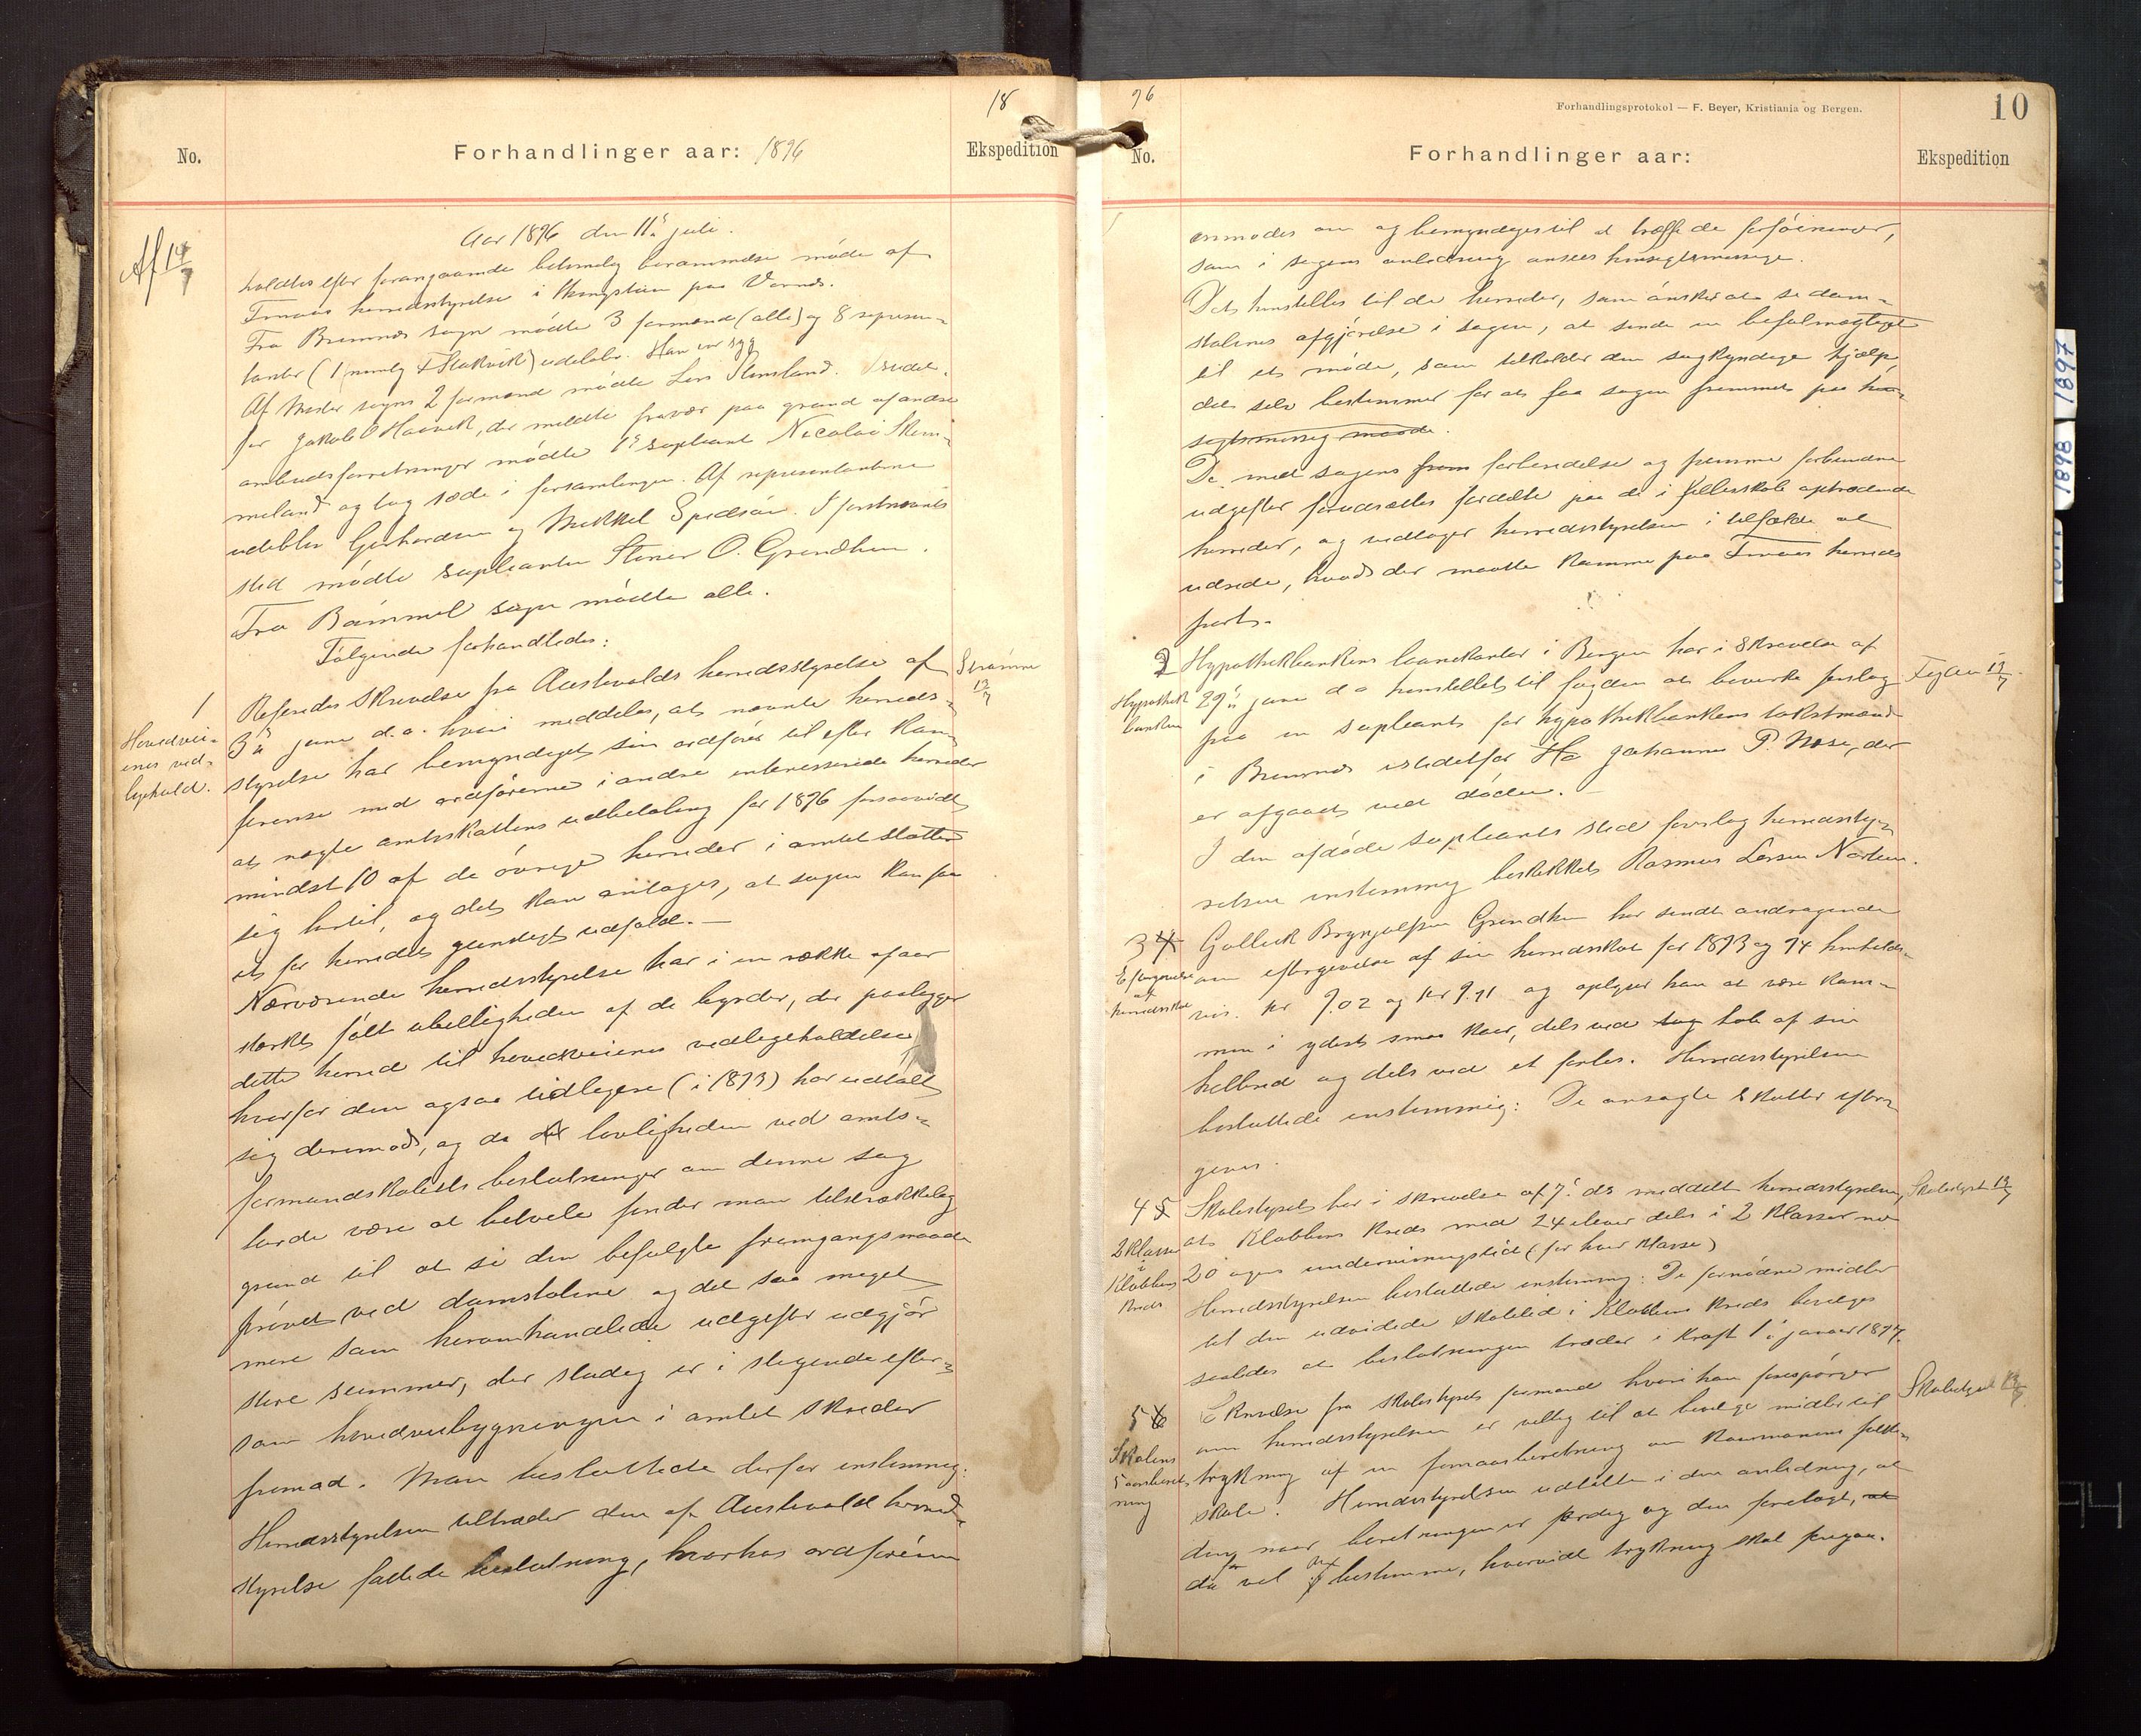 18
No.
Forhandlinger aar: 1896
Ekspedition
Af 14/7
Aar 1896 den 11' juli.
holdtes efter forangaaende betimelig berammelse møde af
Finnaas herredsstyrelse i paa Vornes.
Fra Bremnes sogn mødte 3 formænd (alle) og 8 repræsen-
tanter (1 nemlig T Stakvik) udeblev. Han var syg
Af Moster sogns 2 formænd mødte Lars Steinsland. Istedet-
for Jakob O Haavik, der meldte fravær paa grund af andre
ombudsforretninger mødte 1' supleant Nicolai Skim-
meland og tog sæde i forsamlingen. Af repræsentanterne
udeblev Gerhardsen og Mikkel Spidsøen. I førstnævntes
sted mødte supleanten Stener O. Grindheim.
Fra Bømmel sogn mødte alle.
Følgende forhandledes:
1
Hovedvei-
enes ved-
ligehold.
Referedes skrivelse fra Austevolds herredsstyrelse af
Strømme 13/7
3' juni d.a. hvori meddeles, at nævnte herreds-
styrelse har bemyndiget sin ordfører til efter kon-
feranse med ordførerne i andre interesserede herreder
at nægte amtsskattens udbetaling for 1896 forsaavidt
mindst 10 af de øvrige herreder i amtet slutter
sig hertil, og det kan antages, at sagen kan faa
et for herredet gunstigt udfald.-
Nærværende herredsstyrelse har i en række af aar
stærkt følt ubilligheden af de byrder, der paalægges
dette herred til hovedveienes vedligeholdelse,
hvorfor den ogsaa tidligere (i 1893) har udtalt
sig derimod, og da lovligheden ved amts-
formandskabets beslutninger om denne sag
turde være at betvile finder man tilstrækkelig
grund til at se den befulgte fremgangsmaade
prøvet ved domstolene og det saa meget
mere som heromhandlede udgifter udgjør
store summer, der stadig er i stigende efter-
som hovedveibygningen i amtet skrider
fremad. Man besluttede derfor enstemmig:
Herredsstyrelsen tiltræder den af Austevold herreds-
styrelse fattede beslutning, hvorhos ordføreren
96
Forhandlingsprotokol — F. Beyer, Kristiania og Bergen.
10
No.
Forhandlinger aar:
Ekspedition
anmodes om og bemyndiges til at træffe de forføininger,
som i sagens anledning ansees hensigtsmæssige.
Det henstilles til de herreder, som ønsker at se dom-
stolenes afgjørelse i sagen, at sende en befulmægtiget
til et møde, som tilkalder den sagkyndige hjælp,
det selv bestemmer for at faa sagen fremmet paa hen-
sigtsmæssig maade.
De med sagens frem forberedelse og fremme forbundne
udgifter forudsættes fordelte paa de i fællesskab optrædende
herreder, og vedtager herredsstyrelsen i tilfælde at
udrede, hvad der maatte komme paa Finnaas herreds
part.
2
Hypothek
banken
Hypothekbankens laanekontor i Bergen har i skrivelse af
29' juni d a henstillet til fogden at bevirke forslag
Fogden 13/7.
paa en supleant for hypothekbankens takstmænd
i Bremnes istedetfor Johannes P. Næse, der
er afgaaet ved døden.-
I den afdøde supleants sted foreslog herredssty-
relsen enstemmig beskikket Rasmus Larsen Nortun.
3 4
Eftergivelse
af
herredsskat
Golleik Brynjulfsen Grindheim har sendt andragende
om eftergivelse af sin herredsskat for 1893 og 94 henholds-
vis. kr 9.02 og kr 9.91 og oplyser han at være kom-
men i yderst smaa kaar, dels ved tag tab af sin
helbred og dels ved et forlis. Herredsstyrelsen
besluttede enstemmig: De ansøgte skatter efter-
gives.
4 5
2 klasser
i
Klubbens
kreds
Skolestyret har i skrivelse af 7' ds meddelt herredsstyrelsen,
Skolestyret 13/7
at Klubbens kreds med 24 elever deles i 2 klasser med
20 ugers undervisningstid (for hver klasse)
Herredsstyrelsen besluttede enstemmig: De fornødne midler
til den udvidede skoletid i Klubbens kreds beviliges
saaledes at beslutningen træder i kraft 1' januar 1897.
5 6
Skolens
5 aarsberet-
ning
Skrivelse fra skolestyrets formand hvori han forespørger
Skolestyret 13/7
om herredsstyrelsen er villig til at bevilge midler til
trykning af en femaarsberetning om kommunens folke-
skole. Herredsstyrelsen udtalte i den anledning, at
den, naar beretningen er færdig og den forelagt, at
da vil bestemme, hvorvidt trykning skal foregaa.
1897
1898